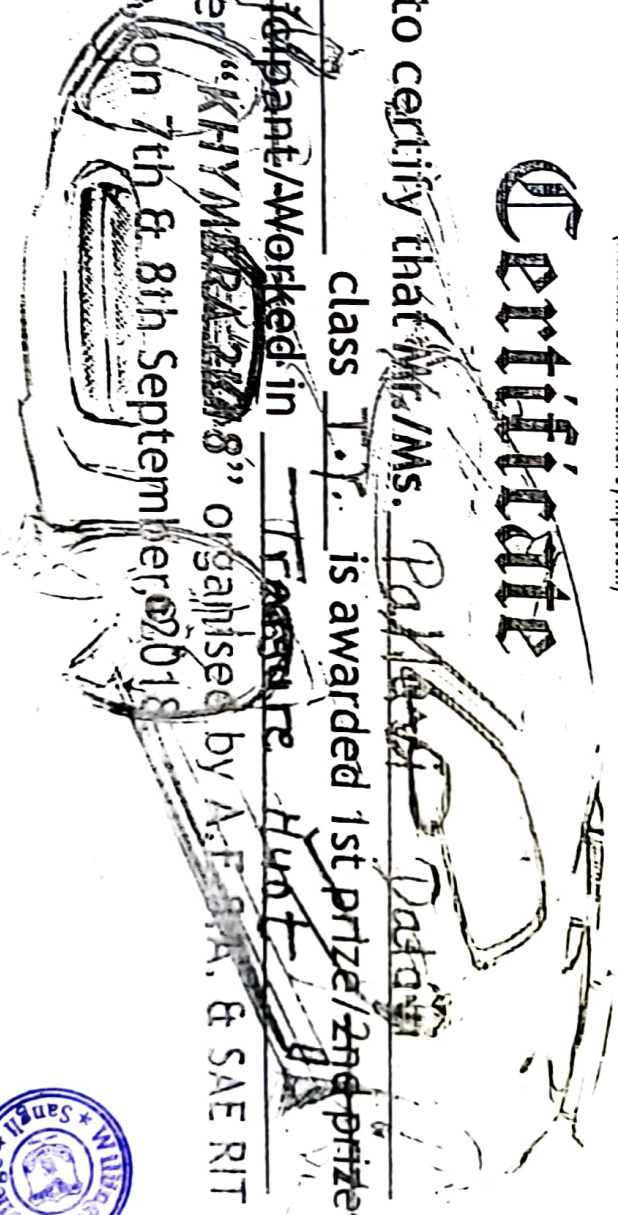 Certificate
to certify that Mr./Ms. Pallavi Datar
class T.Y. is awarded 1st prize/2nd prize
cipant/Worked in Treasure Hunt
er "KHYMERA 2K18" organised by A.F.S.A. & SAE RIT
on 7th & 8th September, 2018
Sangli * Willing